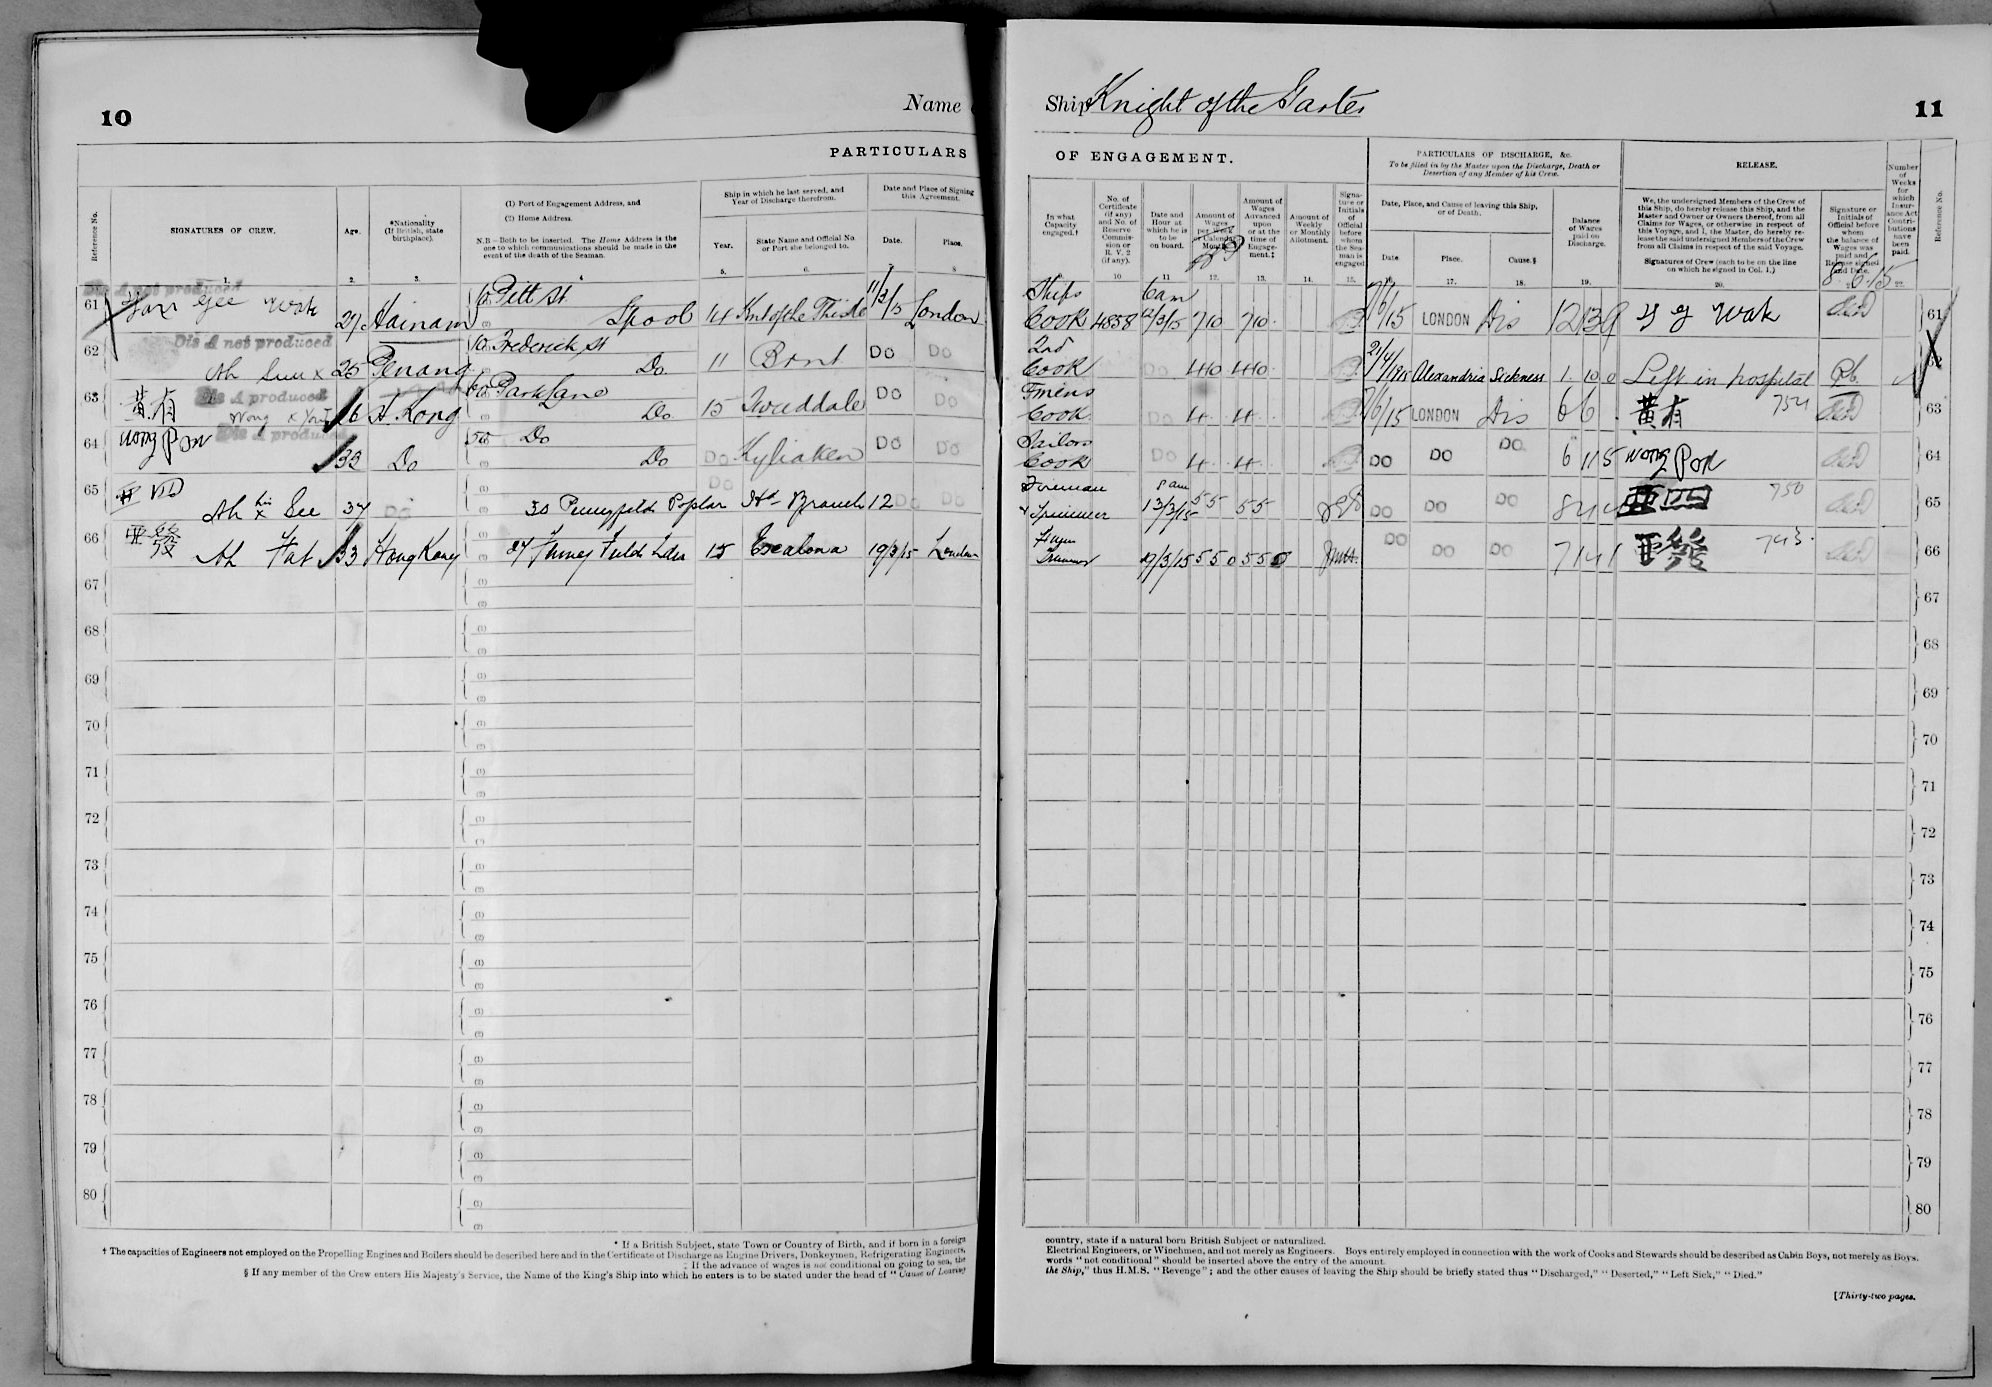 10
Name
PARTICULARS
Reference No.
SIGNATURES OF CREW.
Age.
*Nationality
(If British, state
birthplace).
(1) Port of Engagement Address, and
(2) Home Address.
N.B.—Both to be inserted. The Home Address is the
one to which communications should be made in the
event of the death of the Seaman.
Ship in which he last served, and
Year of Discharge therefrom.
Year.
State Name and Official No.
or Port she belonged to.
Date and Place of Signing
this Agreement.
Date.
Place.
1. 2. 3. 4 5. 6. 7. 8
Dis A not produced
61 Gee Wok 27 Hainam Pitt St
L'pool 14 Knt of the Thistle 11/3/15 London
Dis A not produced
62 Ah x 25 Penang Frederick St
Do 11 Brnt Do Do
Dis A produced
63 黄有 Wong x 26 H. Kong Park Lane
Do 15 Tweeddale Do Do
Dis A produced
64 Wong Pon 33 Do 50 Do
Do Do Do Do
65 亞四 Ah his x See 37 Do 30 Pennyfields Poplar Hd Branch 12 Do Do
66 亞發 Ah Fat 33 Hong Kong 15 Escalona 19/3/15 London
67
68
69
70
71
72
73
74
75
76
77
78
79
80
* If a British Subject, state Town or Country of Birth, and if born in a foreign
† The capacities of Engineers not employed on the Propelling Engines and Boilers should be described here and in the Certificate of Discharge as Engine Drivers, Donkeymen, Refrigerating Engineers,
‡ If the advance of wages is not conditional on going to sea, the
§ If any member of the Crew enters His Majesty's Service, the Name of the King's Ship into which he enters is to be stated under the head of "Cause of Leaving
Ship Knight of the Garter
11
OF ENGAGEMENT.
PARTICULARS OF DISCHARGE, &c.
To be filled in by the Master upon the Discharge, Death or
Desertion of any Member of his Crew.
RELEASE.
In what
Capacity
engaged.†
No. of
Certificate
(if any)
and No. of
Reserve
Commis-
sion or
R. V. 2
(if any).
Date and
Hour at
which he is
to be
on board.
Amount of
Wages
per Week
or Calendar
Month.
Amount of
Wages
Advanced
upon
or at the
time of
Engage-
ment.‡
Amount of
Weekly
or Monthly
Allotment.
Signa-
ture or
Initials
of
Official
before
whom
the Sea-
man is
engaged
Date, Place, and Cause of leaving this Ship,
or of Death.
Date
Place.
Cause.§
Balance
of Wages
paid on
Discharge.
We, the undersigned Members of the Crew of
this Ship, do hereby release this Ship, and the
Master and Owner or Owners thereof, from all
Claims for Wages, or otherwise in respect of
this Voyage, and I, the Master, do hereby re-
lease the said undersigned Members of the Crew
from all Claims in respect of the said Voyage.
Signatures of Crew (each to be on the line
on which he signed in Col. 1.)
Signature or
Initials of
Official before
whom
the balance of
Wages was
paid and
Release signed
and Date.
Number
of
Weeks
for
which
Insur-
ance Act
Contri-
butions
have
been
paid.
Reference No.
10 11 12. 13. 14. 15. 16. 17. 18. 19. 20. 22.
8.6.15
Ships 6am
Cook 4838 12/3/15 7 10 7 10 7/6/15 LONDON Dis 12 13 9 Y G Wok 61
2nd
Cook Do 4 10 4 10 21/4/1915 Alexandria Sickness 1 10 0 Left in hospital 62
Fmens
Cook Do 4 4 7/6/15 LONDON Dis 6 6 黄有 63
Sailors
Cook Do 4 4 Do Do Do 6 11 5 Wong Pon 64
Fireman 8am
& Trimmer 13/3/15 5 5 5 5 Do Do Do 亞四 750 65
Trimmer 5 5 0 5 5 0 Do Do Do 7 14 1 亞發 743 66
67
68
69
70
71
72
73
74
75
76
77
78
79
80
country, state if a natural born British Subject or naturalized.
Electrical Engineers, or Winchmen, and not merely as Engineers. Boys entirely employed in connection with the work of Cooks and Stewards should be described as Cabin Boys, not merely as Boys.
words "not conditional" should be inserted above the entry of the amount.
the Ship," thus H.M.S. "Revenge"; and the other causes of leaving the Ship should be briefly stated thus "Discharged," "Deserted," "Left Sick," "Died."
[Thirty-two pages.